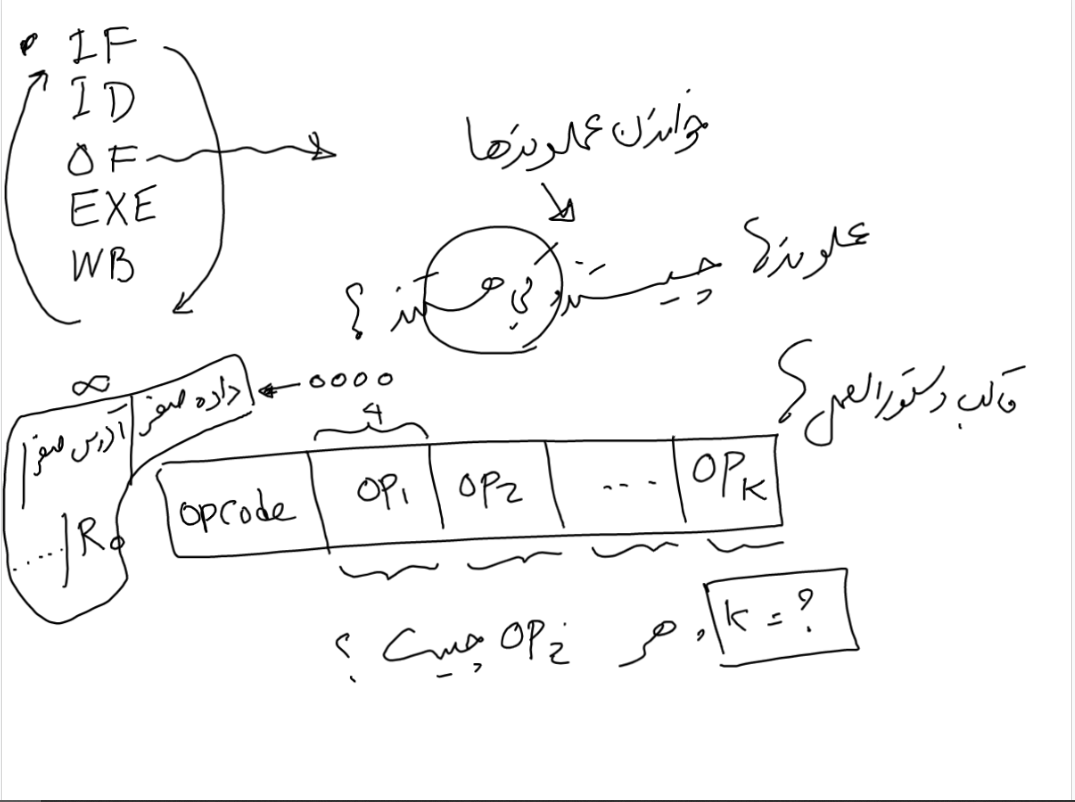 IF
ID
OF
EXE
WB
خواندن عملوندها
عملوندها چیستند، کی هستند ؟
قالب دستورالعمل ؟
0000
داده صفر
∞
آدرس صفر
R0
....
4
opcode OP1 OP2 .... OPK
K = ? ، هر OPi چیست ؟